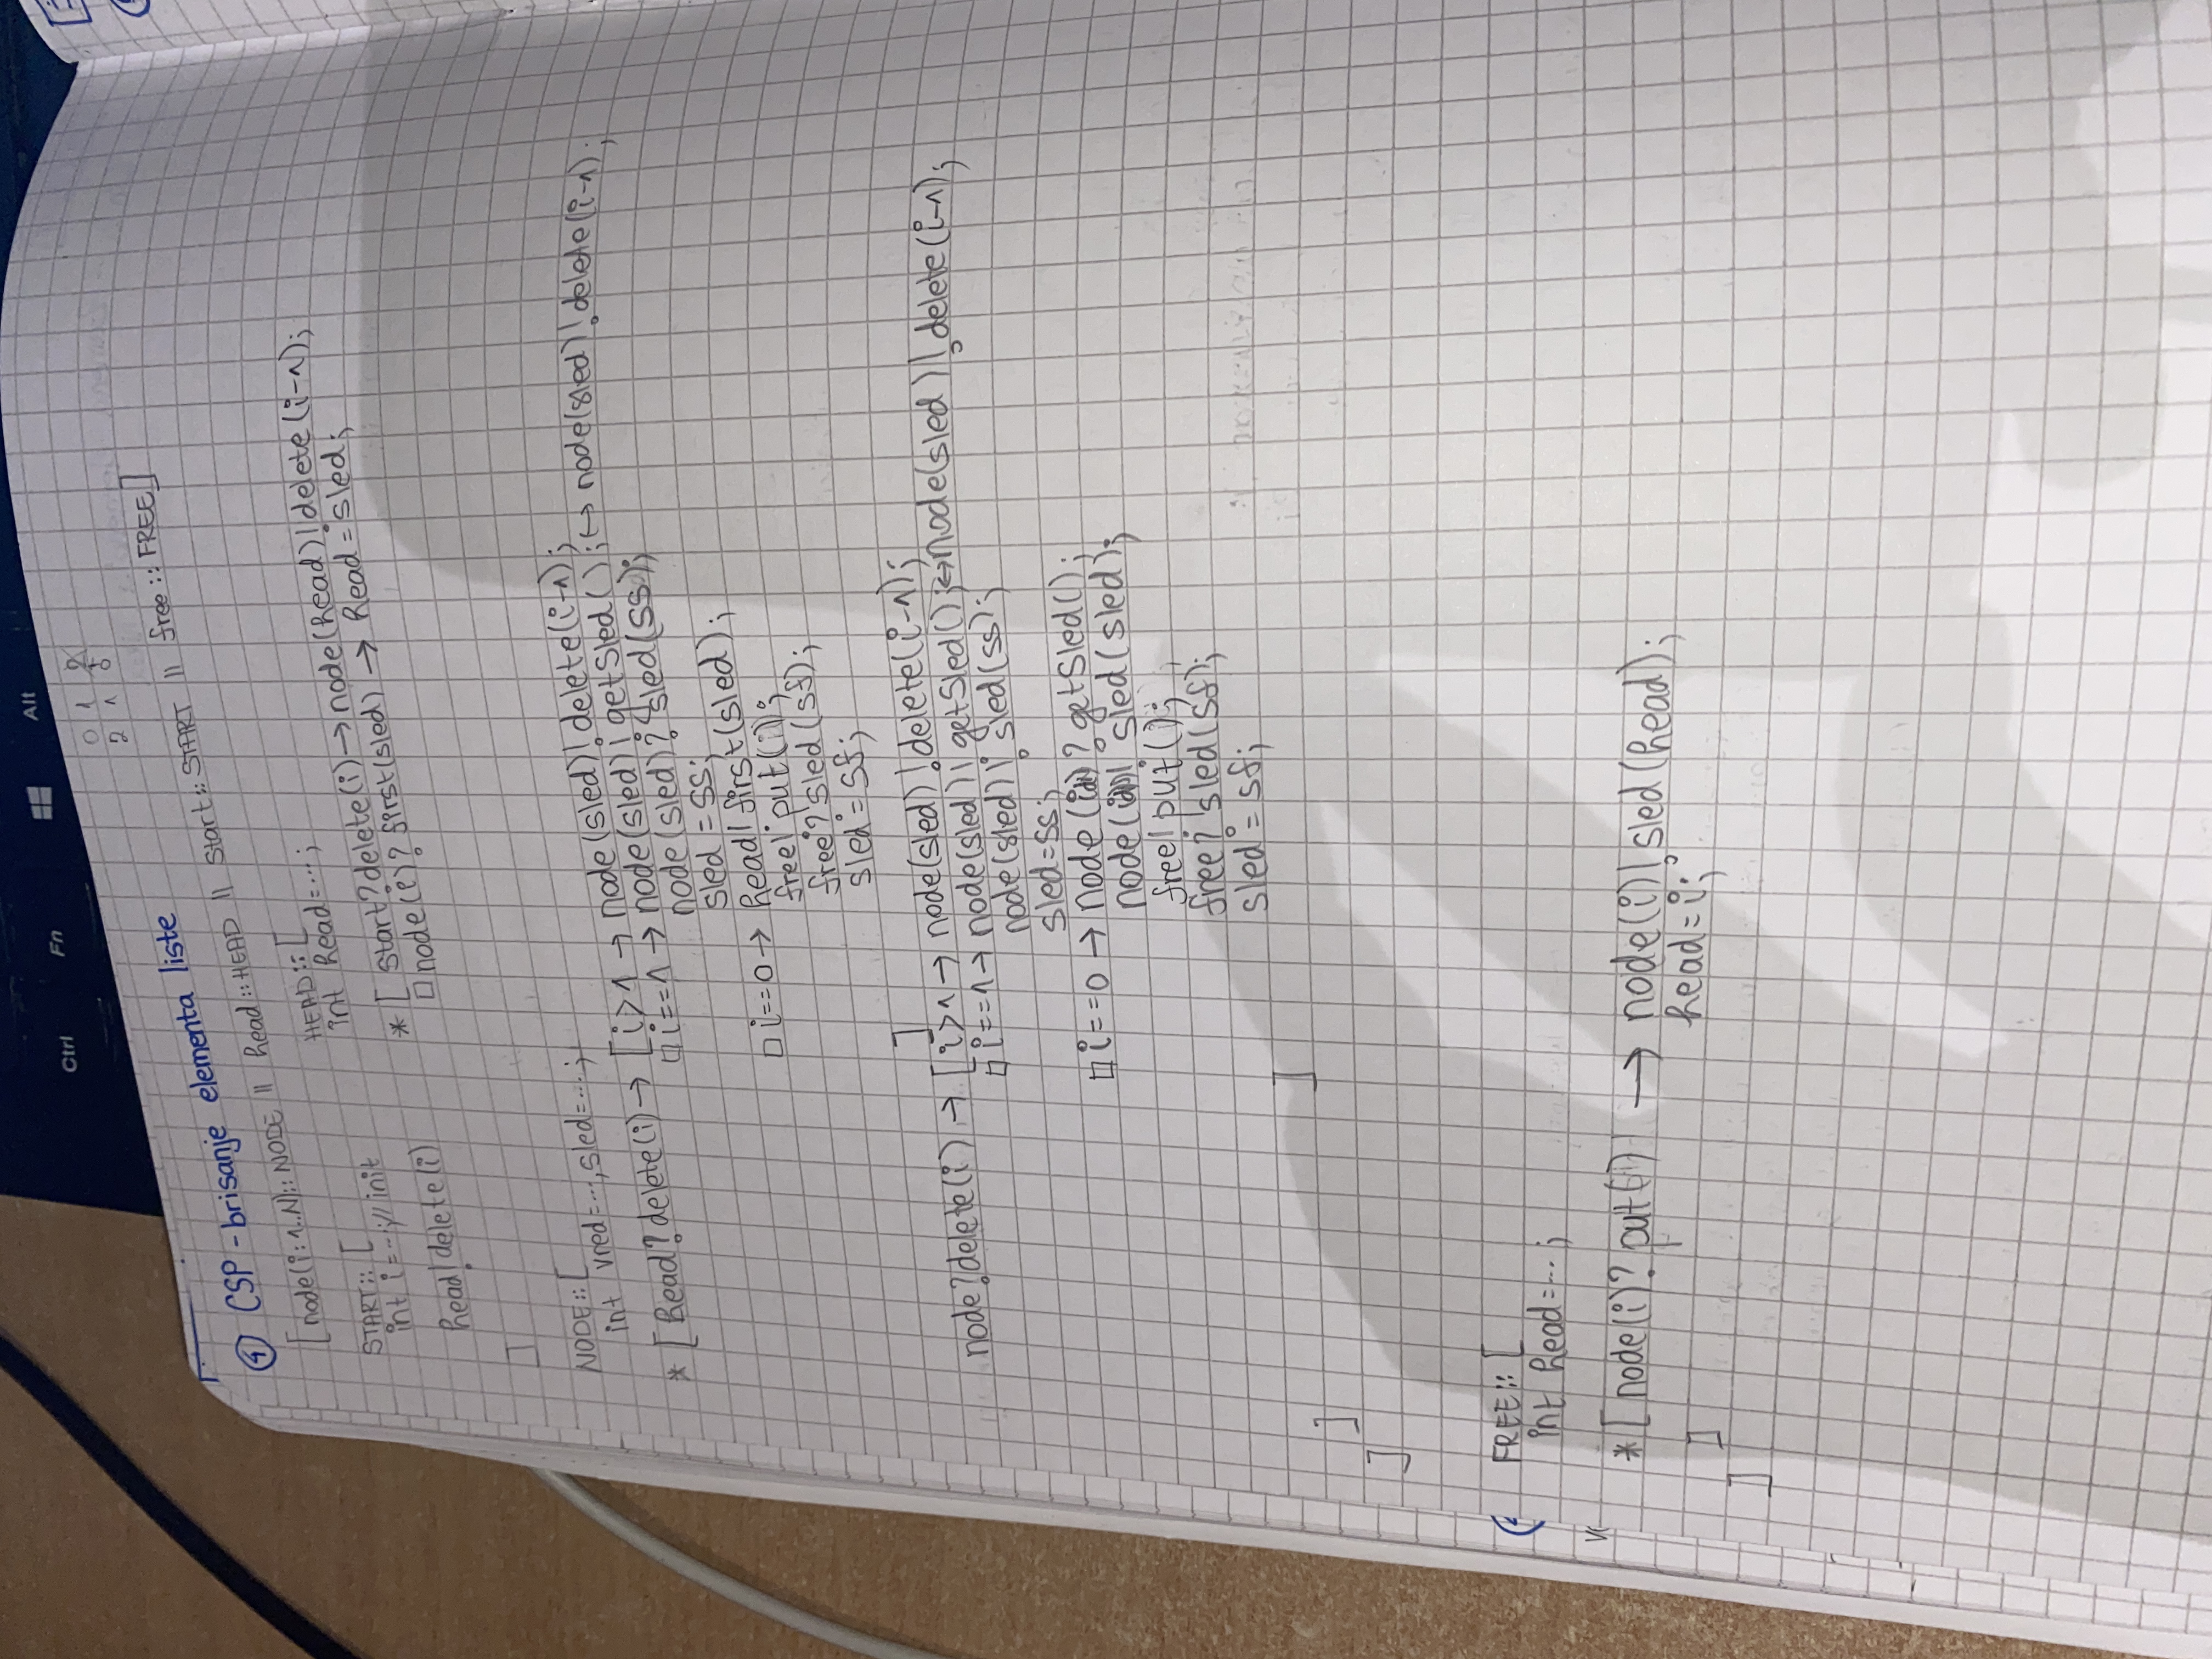 Ctrl Fn Alt
0 1 2
2 1 0
④ CSP - brisanje elementa liste
[node(i:1..N)::NODE || head::HEAD || Start::START || free::FREE]
START::[
int i=...;// init
head!delete(i)
]
HEAD::[
int head=...;
*[ Start?delete(i)→node(head)!delete(i-1);
□node(i)?first(sled) → head=sled;
NODE::[
int vred=...,sled=...;
*[head?delete(i)→ [i>1→ node(sled)!delete(i-1);
□i==1→node(sled)!getSled();↔ node(sled)!delete(i-1);
node(sled)?sled(ss);
sled=ss;
□i==0→ head!first(sled);
free!put(i);
free?sled(sf);
sled=sf;
]
node?delete(i)→ [i>1→node(sled)!delete(i-1);
□i==1→node(sled)!getSled();↔node(sled)!delete(i-1);
node(sled)!sled(ss);
sled=ss;
□i==0 → node( )?getSled();
node( )!sled(sled);
free!put();
free?sled(sf);
sled=sf;
]
]
]
FREE::[
int head=...;
*[node(i)?put(i) → node(i)!sled(head);
head=i;
]
]